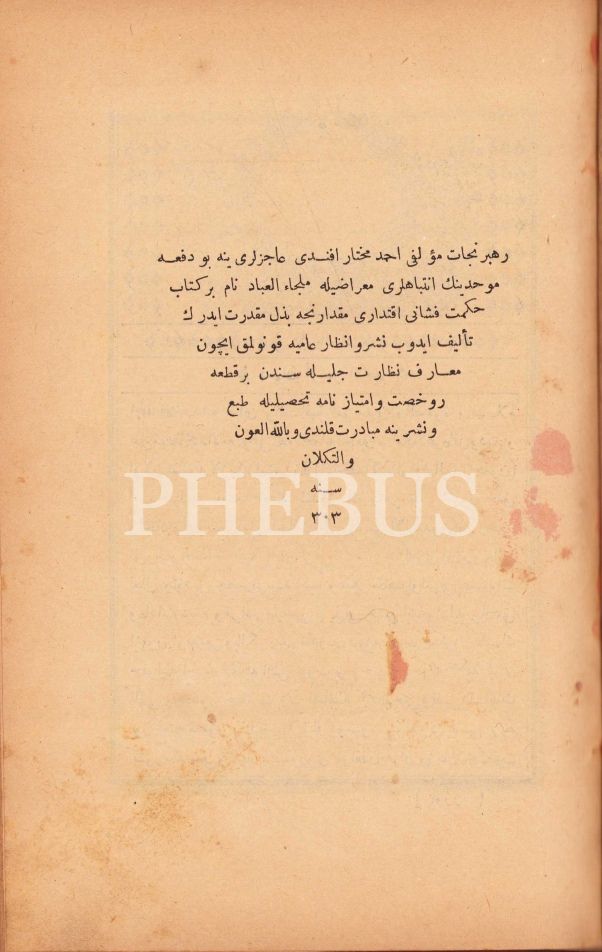 رهبر نجات مؤلفى احمد مختار افندى عاجزلرى ينه بو دفعه
موحدينك انتباهلرى معراضيله ملجاء العباد نام بر كتاب
حكمت فشانى اقتدارى مقدارنجه بذل مقدرت ايدرك
تأليف ايدوب نشر و انظار عاميه قونولمق ايچون
معارف نظارت جليله سندن بر قطعه
روخصت و امتياز نامه تحصيليله طبع
ونشرينه مبادرت قلندى وبالله العون
والتكلان
سنه
٣٠٣
PHEBUS